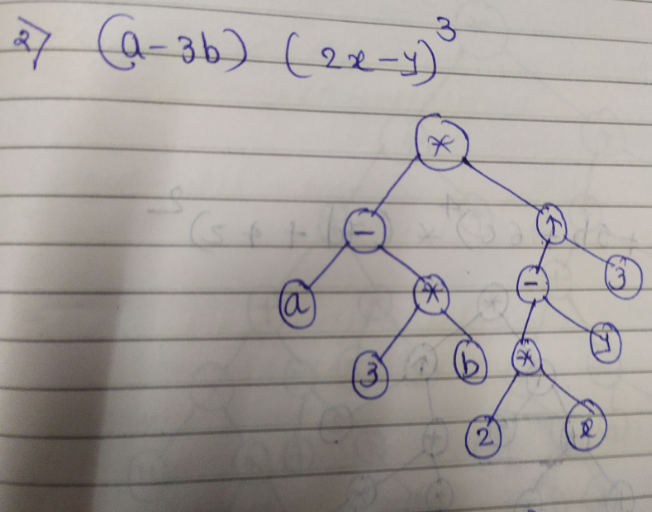 2) (a-3b) (2x-y)³
*
- ↑
a * - 3
3 b * y
2 x